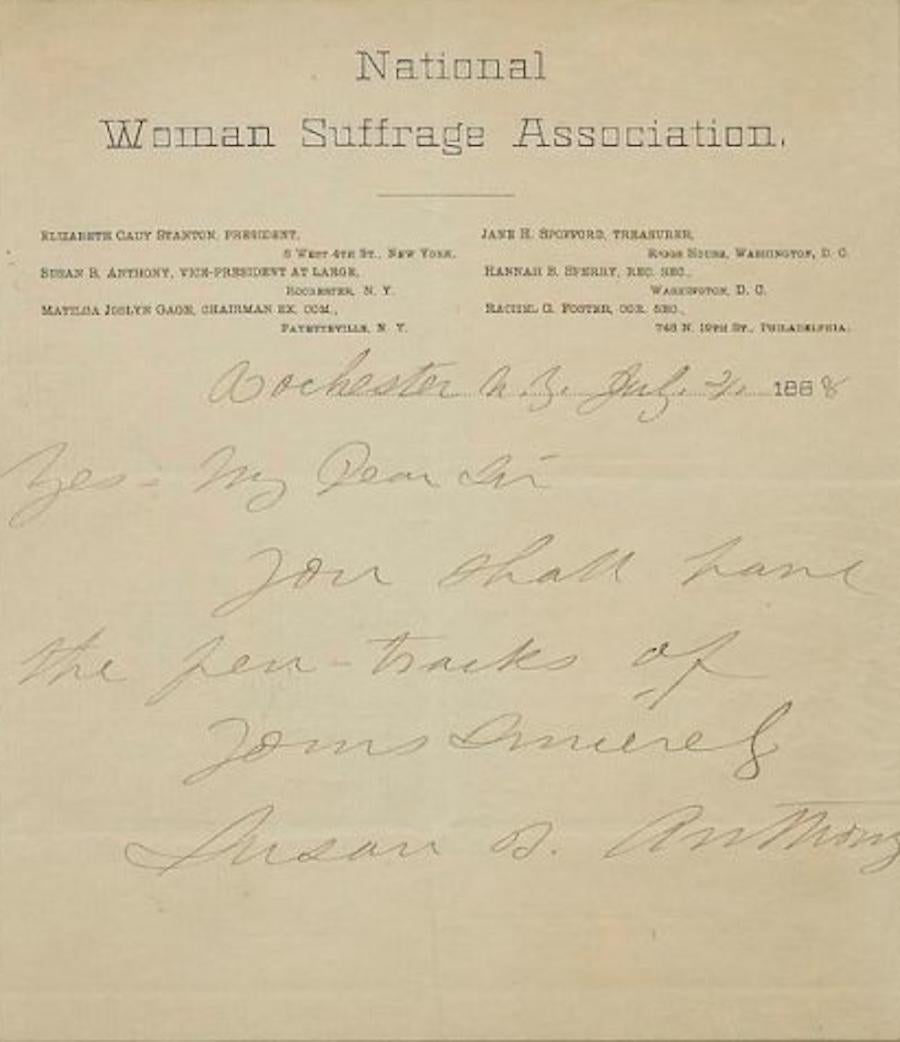 National
Woman Suffrage Association.
ELIZABETH CADY STANTON, PRESIDENT,
8 WEST 4TH ST., NEW YORK.
SUSAN B. ANTHONY, VICE-PRESIDENT AT LARGE,
ROCHESTER, N. Y.
MATILDA JOSLYN GAGE, CHAIRMAN EX. COM.,
FAYETTEVILLE, N. Y.
JANE H. SPOFFORD, TREASURER,
RIGGS HOUSE, WASHINGTON, D. C.
HANNAH B. SPERRY, REC. SEC.,
WASHINGTON, D. C.
RACHEL G. FOSTER, COR. SEC.,
748 N. 19TH ST., PHILADELPHIA.
Rochester N.Y. July 21. 1888
Yes - My Dear Sir
You shall have
the pen-tracks of
Yours Sincerely
Susan B. Anthony